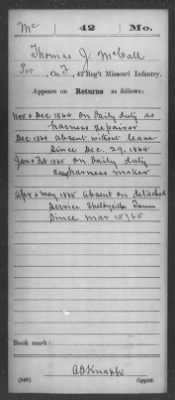 Mc | 42 | Mo.
Thomas J. McCall
Pvt, Co. F, 42 Reg't Missouri Infantry.
Appears on Returns as follows:
Nov & Dec 1864 on Daily duty as
harness repairer
Dec 1864 absent without leave
since Dec. 29, 1864
Jan & Feb 1865 on Daily duty
harness maker
Apr & May 1865 absent on detached
service Shelbyville Tenn
since Mar 15/65
Book mark:
A D Knapp
(546) Copyist.